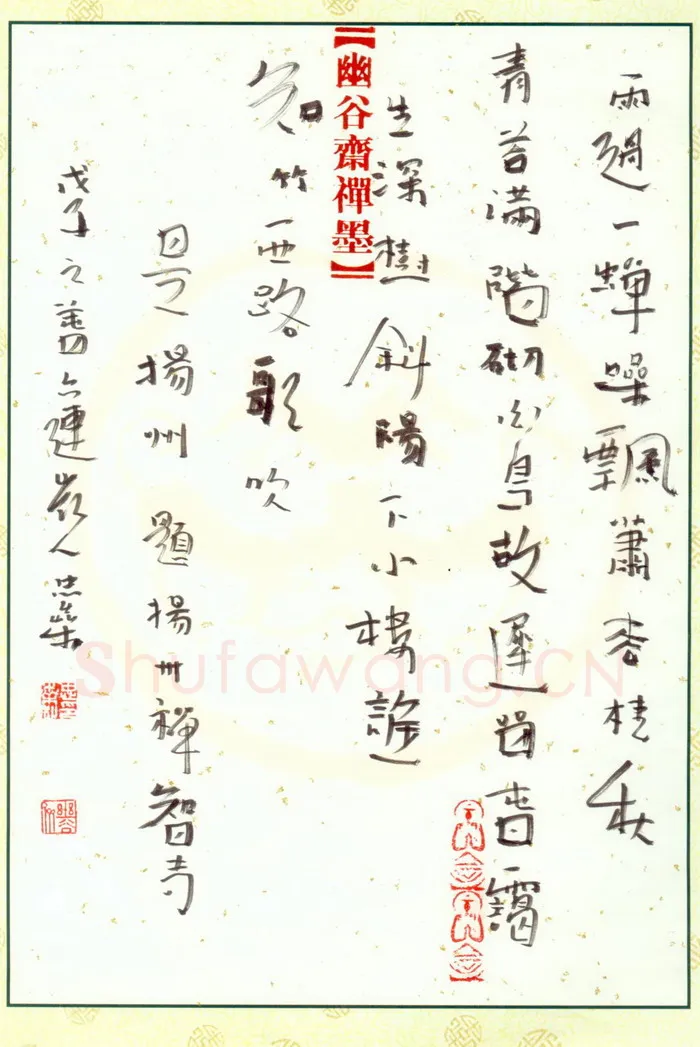 雨過一蟬噪飄蕭松桂秋
青苔滿階砌白鳥故遲留暮靄
生深樹斜陽下小樓誰
【幽谷齋禪墨】
知竹西路歌吹
是揚州 題揚州禪智寺
戊子之
Shufawang.CN